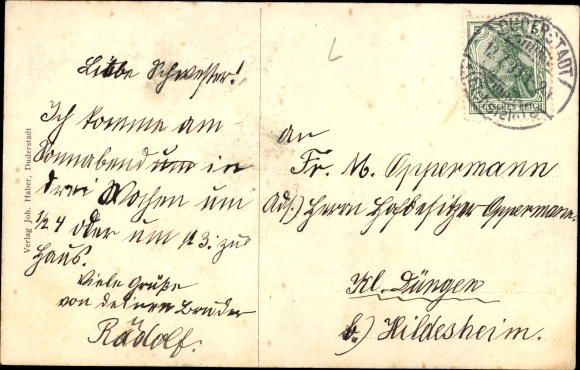 Liebe Schwester!
Ich komme am
Sonnabend um in
drei Wochen um
1/2 4 oder um 1/2 3. zu
Haus.
Viele Grüße
von deinem Bruder
Rudolf.
Verlag Joh. Haber, Duderstadt
DUDERSTADT
DEUTSCHES REICH
An
Fr. M. Oppermann
Adr.) Herrn Hofbesitzer Oppermann.
Kl. Düngen
b.) Hildesheim.